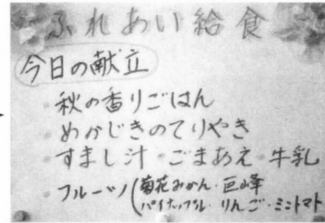 ふれあい給食
今日の献立
・秋の香りごはん
・めかじきのてりやき
・すまし汁・ごまあえ・牛乳
・フルーツ(菊花みかん・巨峰
パイナップル・りんご・ミニトマト